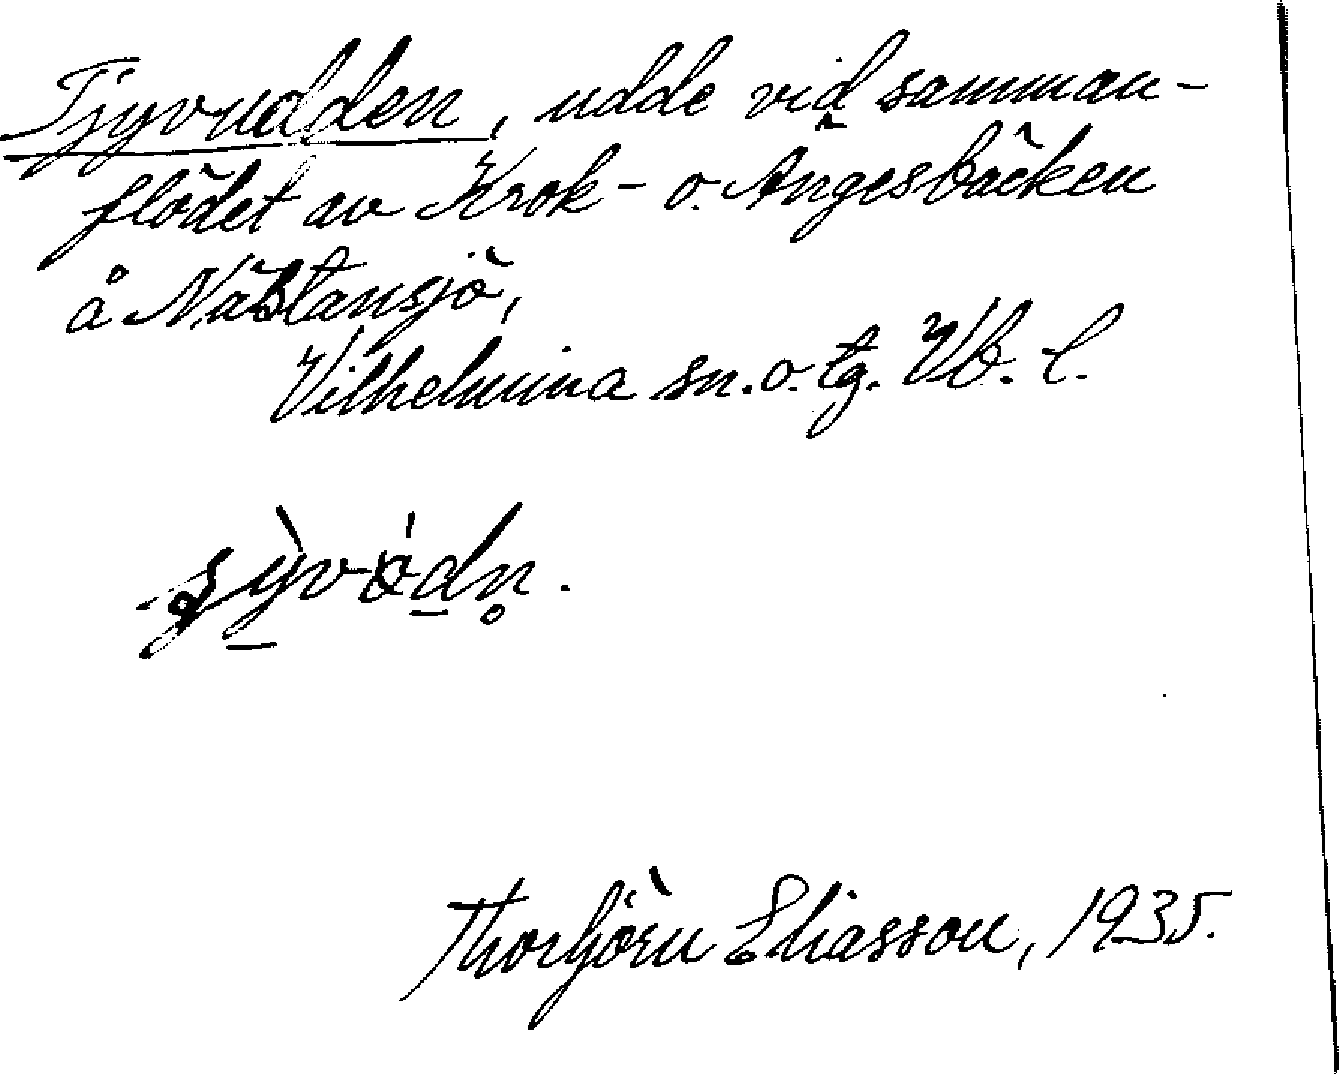 Tjyvudden, udde vid samman-
flödet av Krok- o. Ångesbäcken
å Nästansjö,
Vilhelmina sn. o. tg. Vb. l.
Thorbjörn Eliasson, 1935.